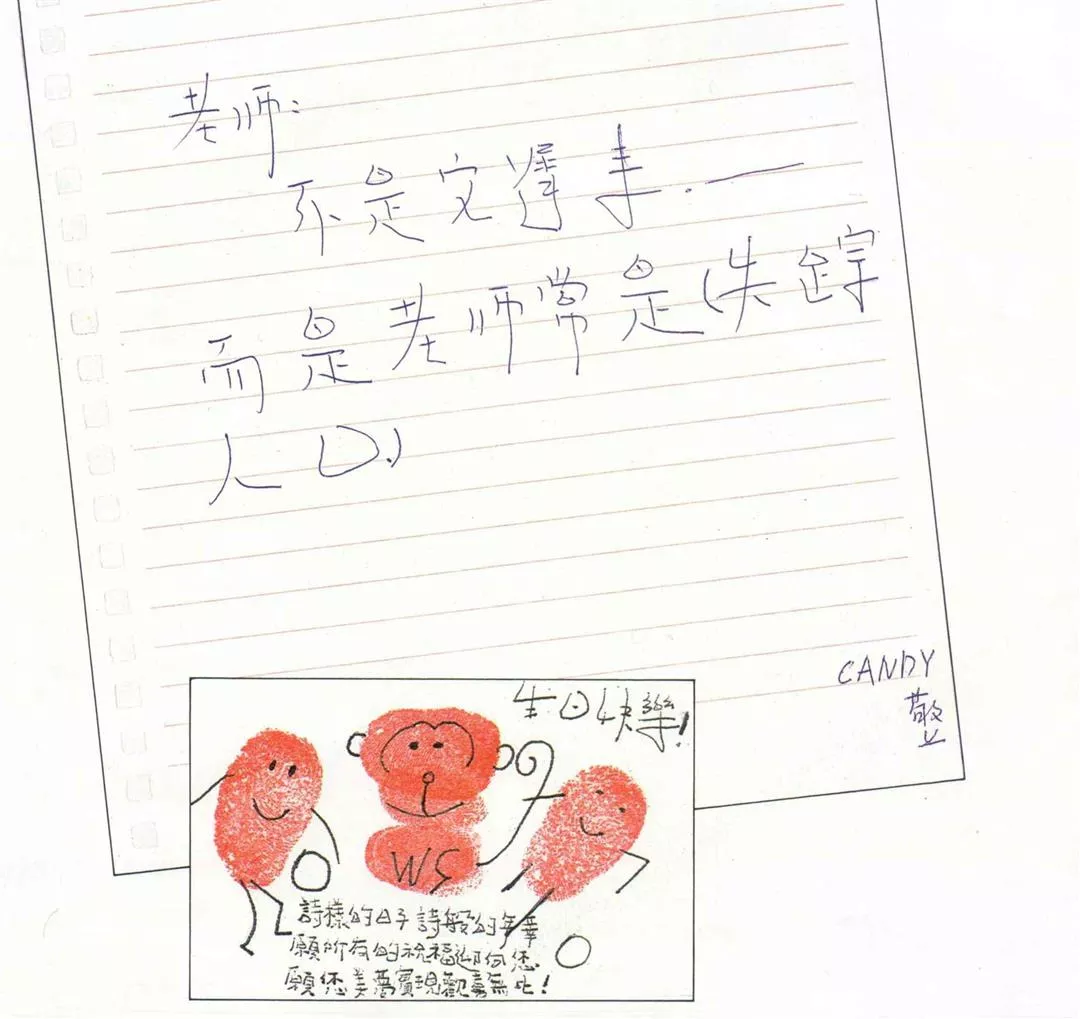 老师:
不是交遲半.—
而是老师常是(失踪
人口.)
CANDY
敬上
生日快樂!
WS
詩樣的日子詩般的年華
願所有的祝福迎向您
願您美夢實現歡喜無比!